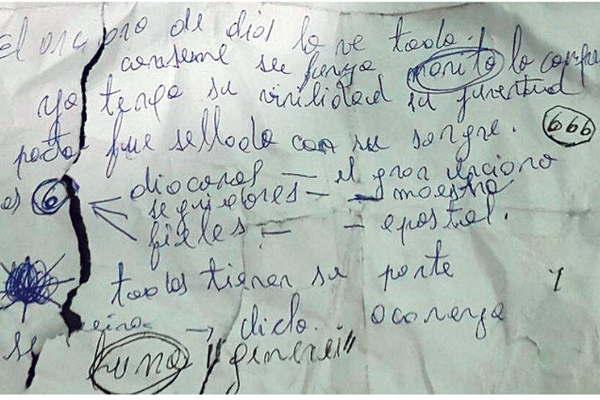 El oscuro de dios lo ve todo.
consume su fuego monito lo compr
ya tengo su virilidad su juventud
pacto fue sellado con su sangre. 666
os 6 diaconos — el gran anciano
seguidores — maestro
fieles — apostol.
todos tienen su parte y
se → dicto.
luna "generei"